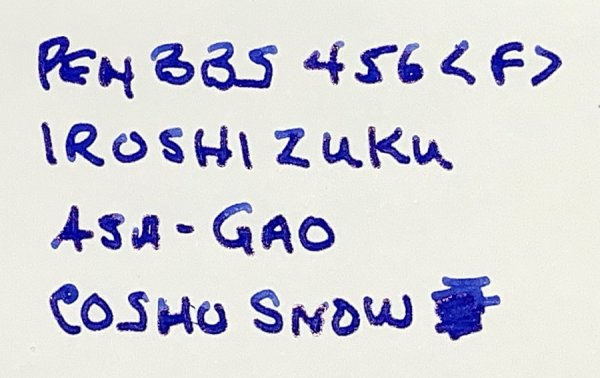 PENBBS 456 <F>
IROSHIZUKU
ASA-GAO
COSHO SNOW